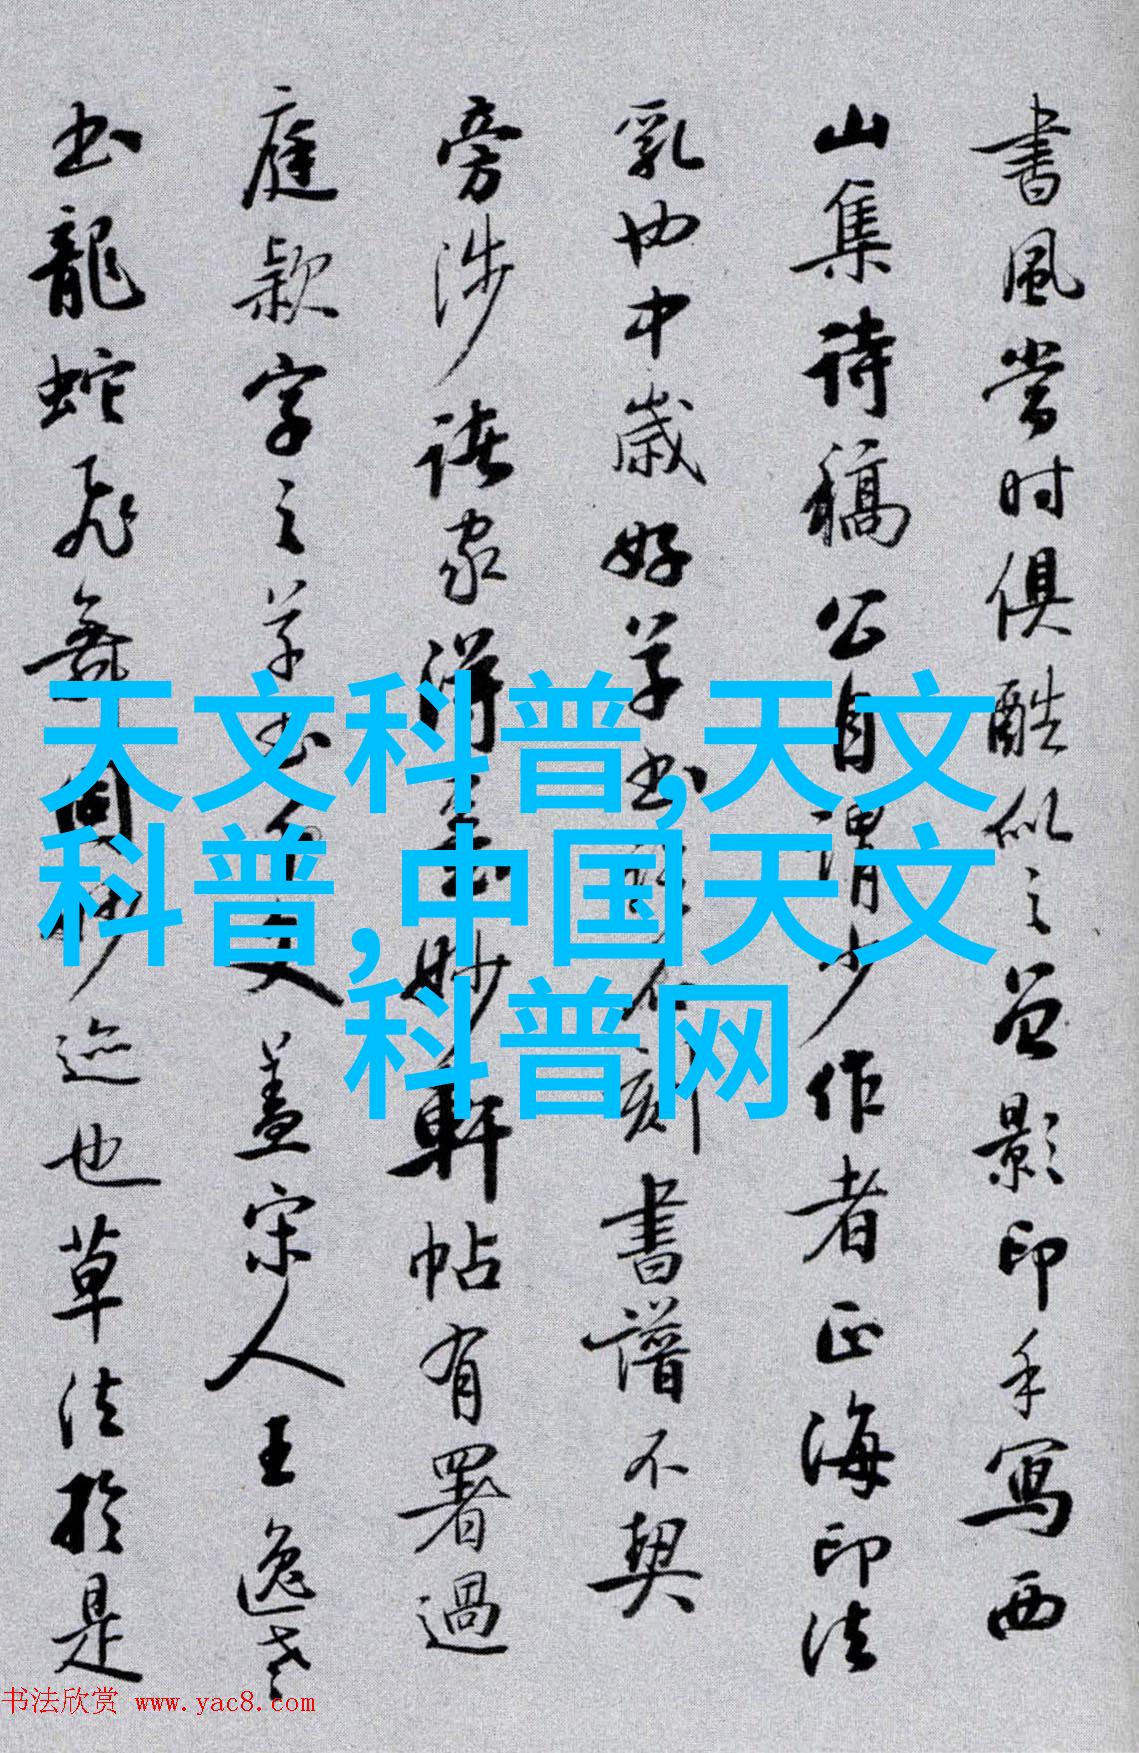 書風當时俱酷似之曾影印手寫西
山集诗稿公自谓少作者正海印法
乳也中歲好草书刻書譜不契
旁涉諸家得妙軒帖有署過
庭款字之草书文蓋宋人王逸老
书龍蛇飛舞洵妙迹也草法於是
天文科普,天文
科普,中国天文
科普网
书法欣赏 www.yac8.com